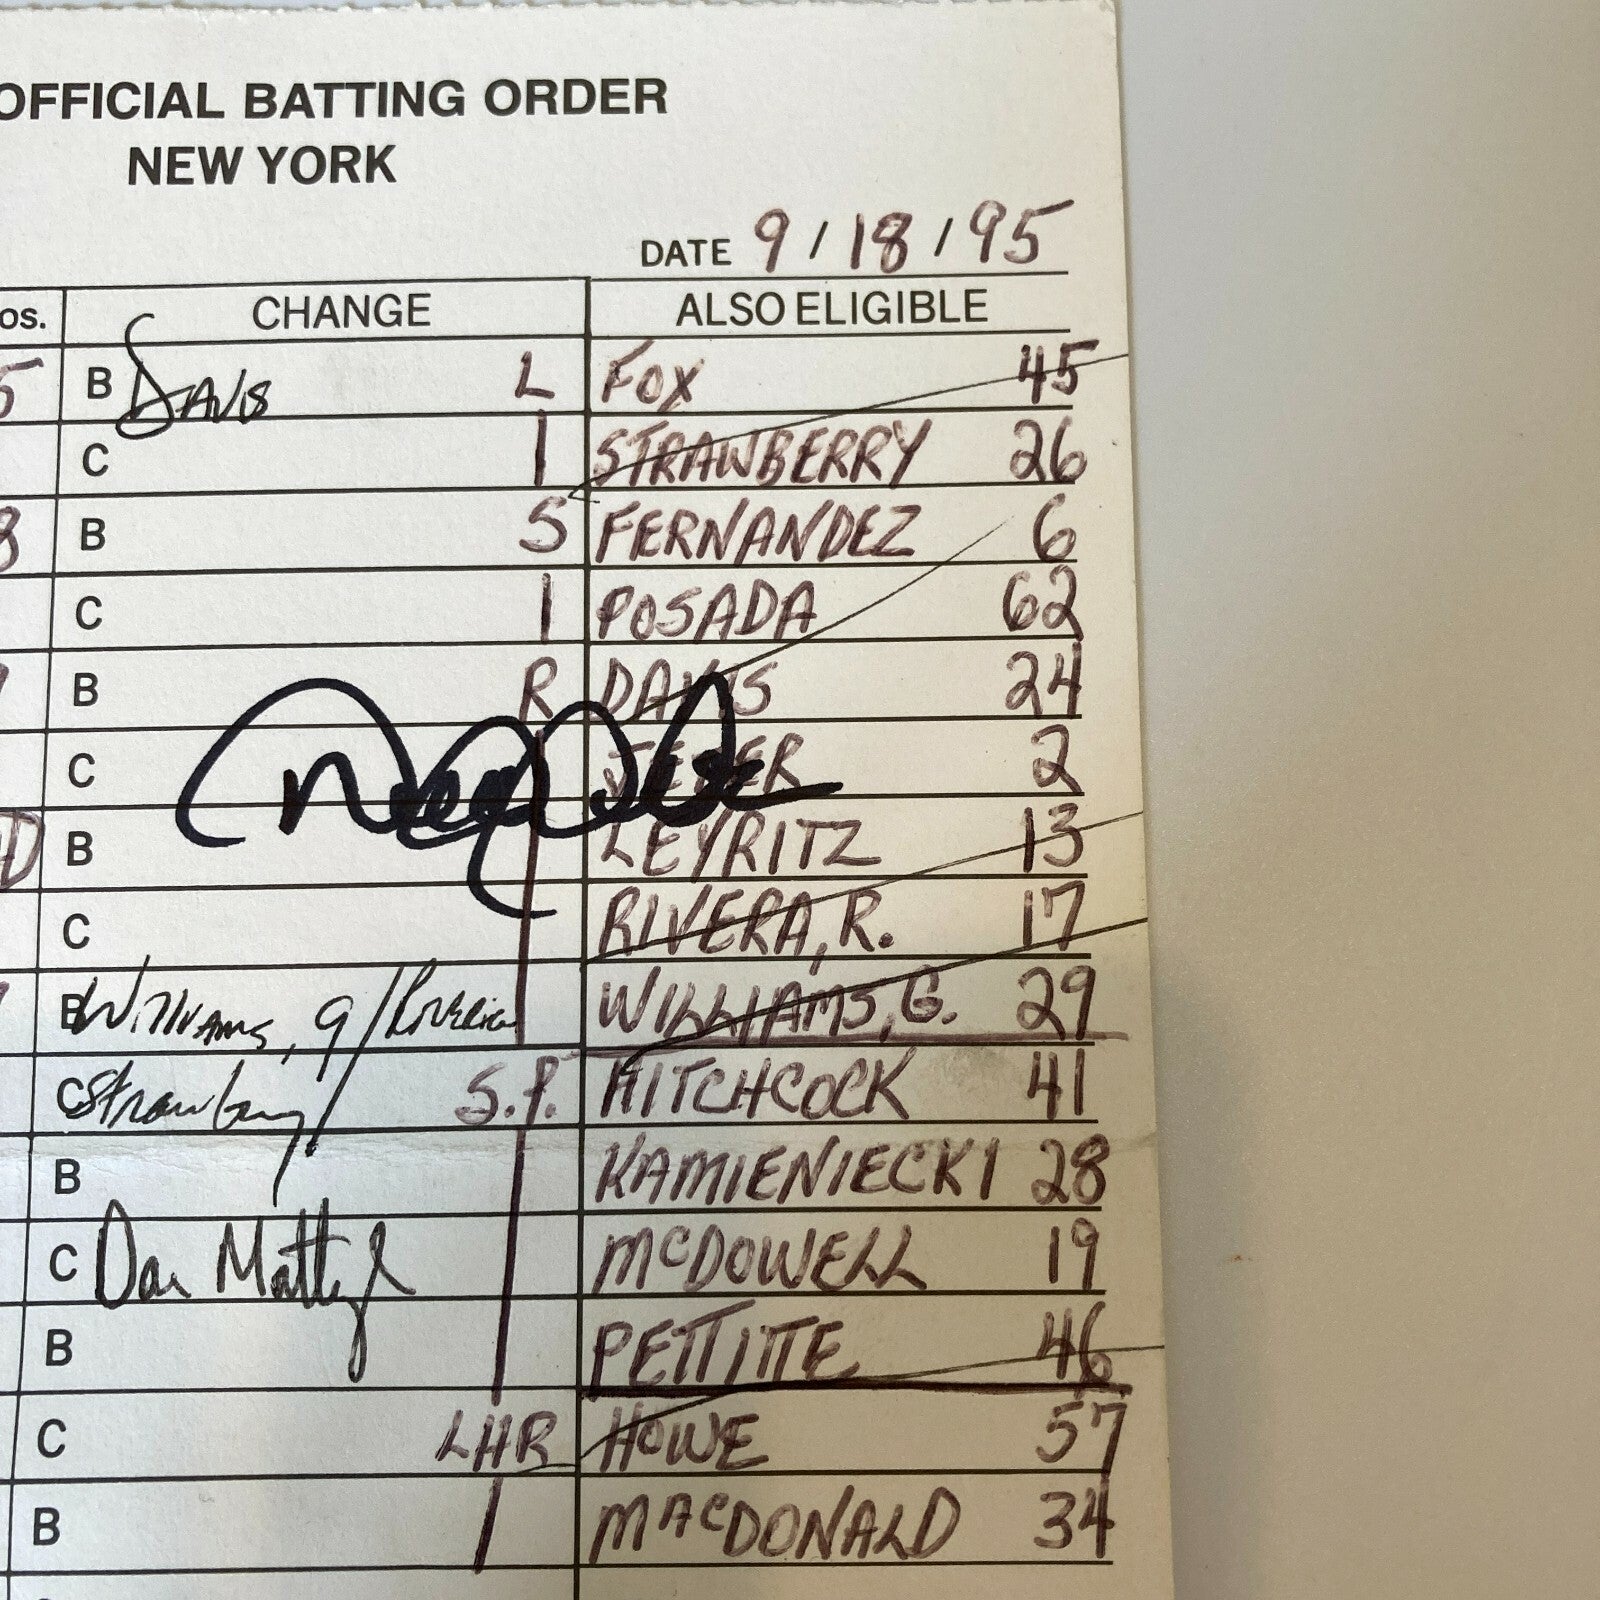 OFFICIAL BATTING ORDER
NEW YORK
DATE 9/18/95
os. CHANGE ALSO ELIGIBLE
5 B Davis L FOX 45
C 1 STRAWBERRY 26
8 B S FERNANDEZ 6
C 1 POSADA 62
B R DAVIS 24
C JETER 2
B LEYRITZ 13
C RIVERA, R. 17
B Williams, g / STRAWBERRY WILLIAMS, G. 29
C Strawberry S.P. HITCHCOCK 41
B KAMIENIECKI 28
C Don Mattingly McDOWELL 19
B PETTITTE 46
C LHR HOWE 57
B MACDONALD 34